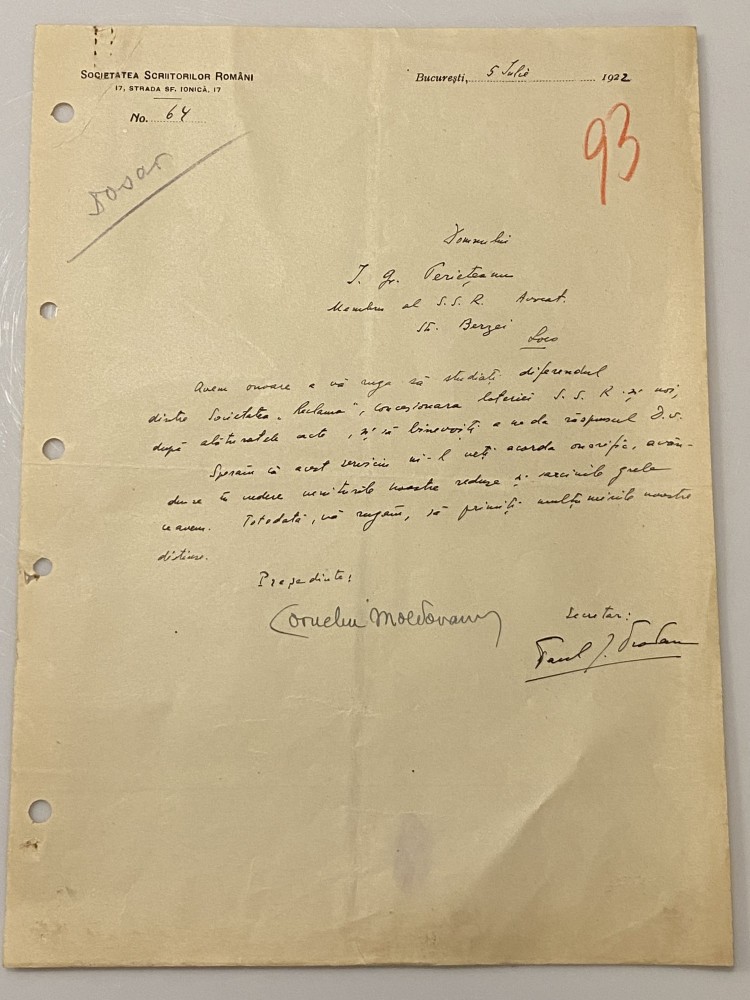 SOCIETATEA SCRIITORILOR ROMÂNI
17, STRADA SF. IONICĂ, 17
No. 64
București, 5 Iulie 1922
93
Dosar
Domnului
I. Gr. Periețeanu
Membru al S. S. R. Avocat.
St. Berzei
Loco
Avem onoare a vă ruga să studiați diferendul
dintre Societatea „Reclama", concesionara loteriei S. S. R. și noi,
după alăturatele acte, și să binevoiți a ne da răspunsul D.v.
Sperăm că acest serviciu ni-l veți acorda onorific, avân-
du-se în vedere veniturile noastre reduse și sarcinile grele
ce avem. Totodată, vă rugăm, să primiți mulțumirile noastre
distinse.
Președinte:
Corneliu Moldovanu
Secretar:
Paul I. Prodan